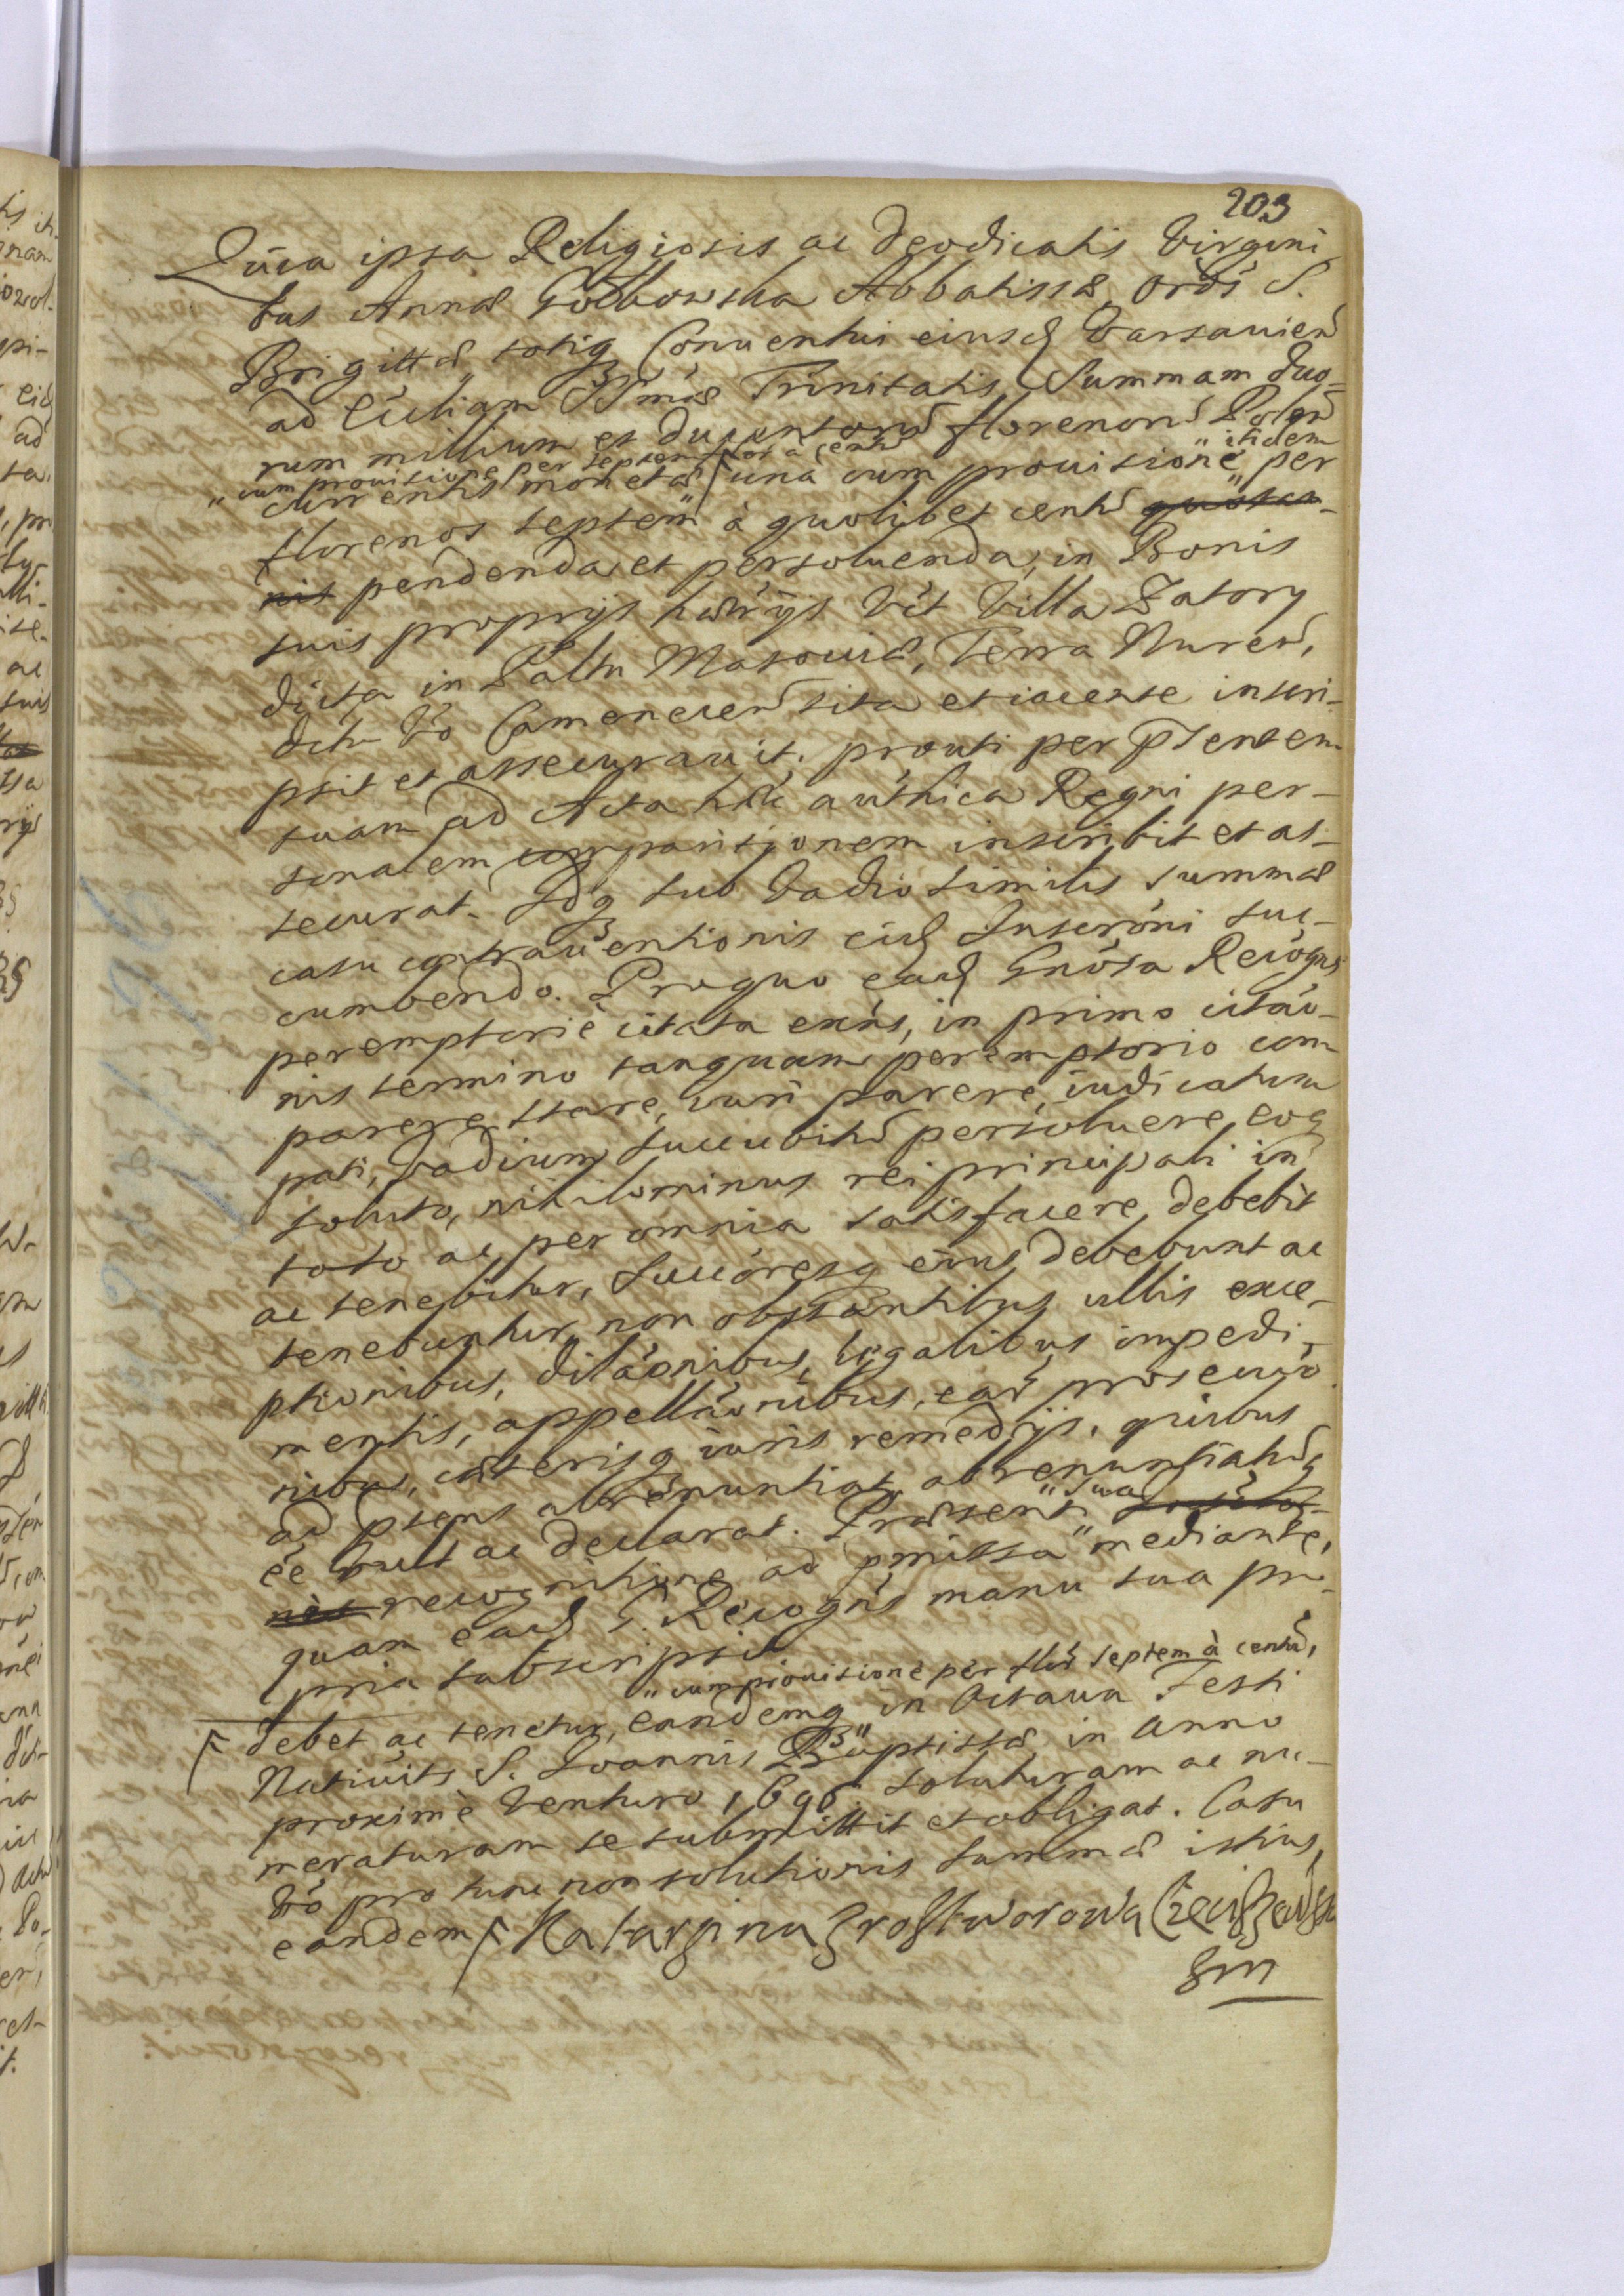 203
Quia ipsa Religiosis ac Deodicatis Virgini
bus Annæ Gołbowska Abbatissæ, Ordis S.
Brigittæ totiq Conventui eiusd Varsavien
ad Ecliam SSmæ Trinitatis Summam duo-
rum millium et ducentoru florenoru Polon
" cum provisione per septem flor à centu
currentis monetæ una cum provisione " itidem " per
florenos septem à quolibet centu quotan-
nis pendenda et persoluenda, in Bonis
suis proprijs hærijs vt Villa Zatory
dicta in Paltu Masouiæ, Terra Nuren,
Dctu vo Camenecen sita et iacente inscri-
psit et assecurauit, prouti per pstentem
suam ad Acta hæc authica Regni per-
sonalem comparitionem inscribit et as-
securat. Idq sub vadio similis summæ
casu contrauentionis eid Inscroni suc-
cumbendo. Proquo ead Gnosa Recogns
peremptorie citata exns, in primo citao-
nis termino tanquam peremptorio com
parere, stare, iuri parere, iudicatum
pati, vadium succubitu persoluere, eoq
soluto, nihilominus rei principali in
toto ac per omnia satisfacere debebit
ac tenebitur, Succoresq eius debebunt ac
tenebuntur, non obstantibus ullis exce-
ptionibus, dilaonibus, legalibus impedi-
mentis, appellaonibus, earu prosecuo
nibus, cæterisq iuris remedijs, quibus
ad pstens abrenuntiat, abrenuntiatuq
ee vult ac declarat. Præsenti " sua
nis recognitione ad præmissa " mediante,
quam ead G. Recogns manu sua pro-
pria subscripsit
" cum provisione per flor septem à centu,
Debet ac tenetur, eandemq " in Octaua Festi
Natiuits S. Ioannis Baptistæ in Anno
proxime venturo 1696 soluturam ac nu-
meraturam se submittit et obligat. Casu
vo pro tunc non solutionis summæ istius,
eandem Katarzina